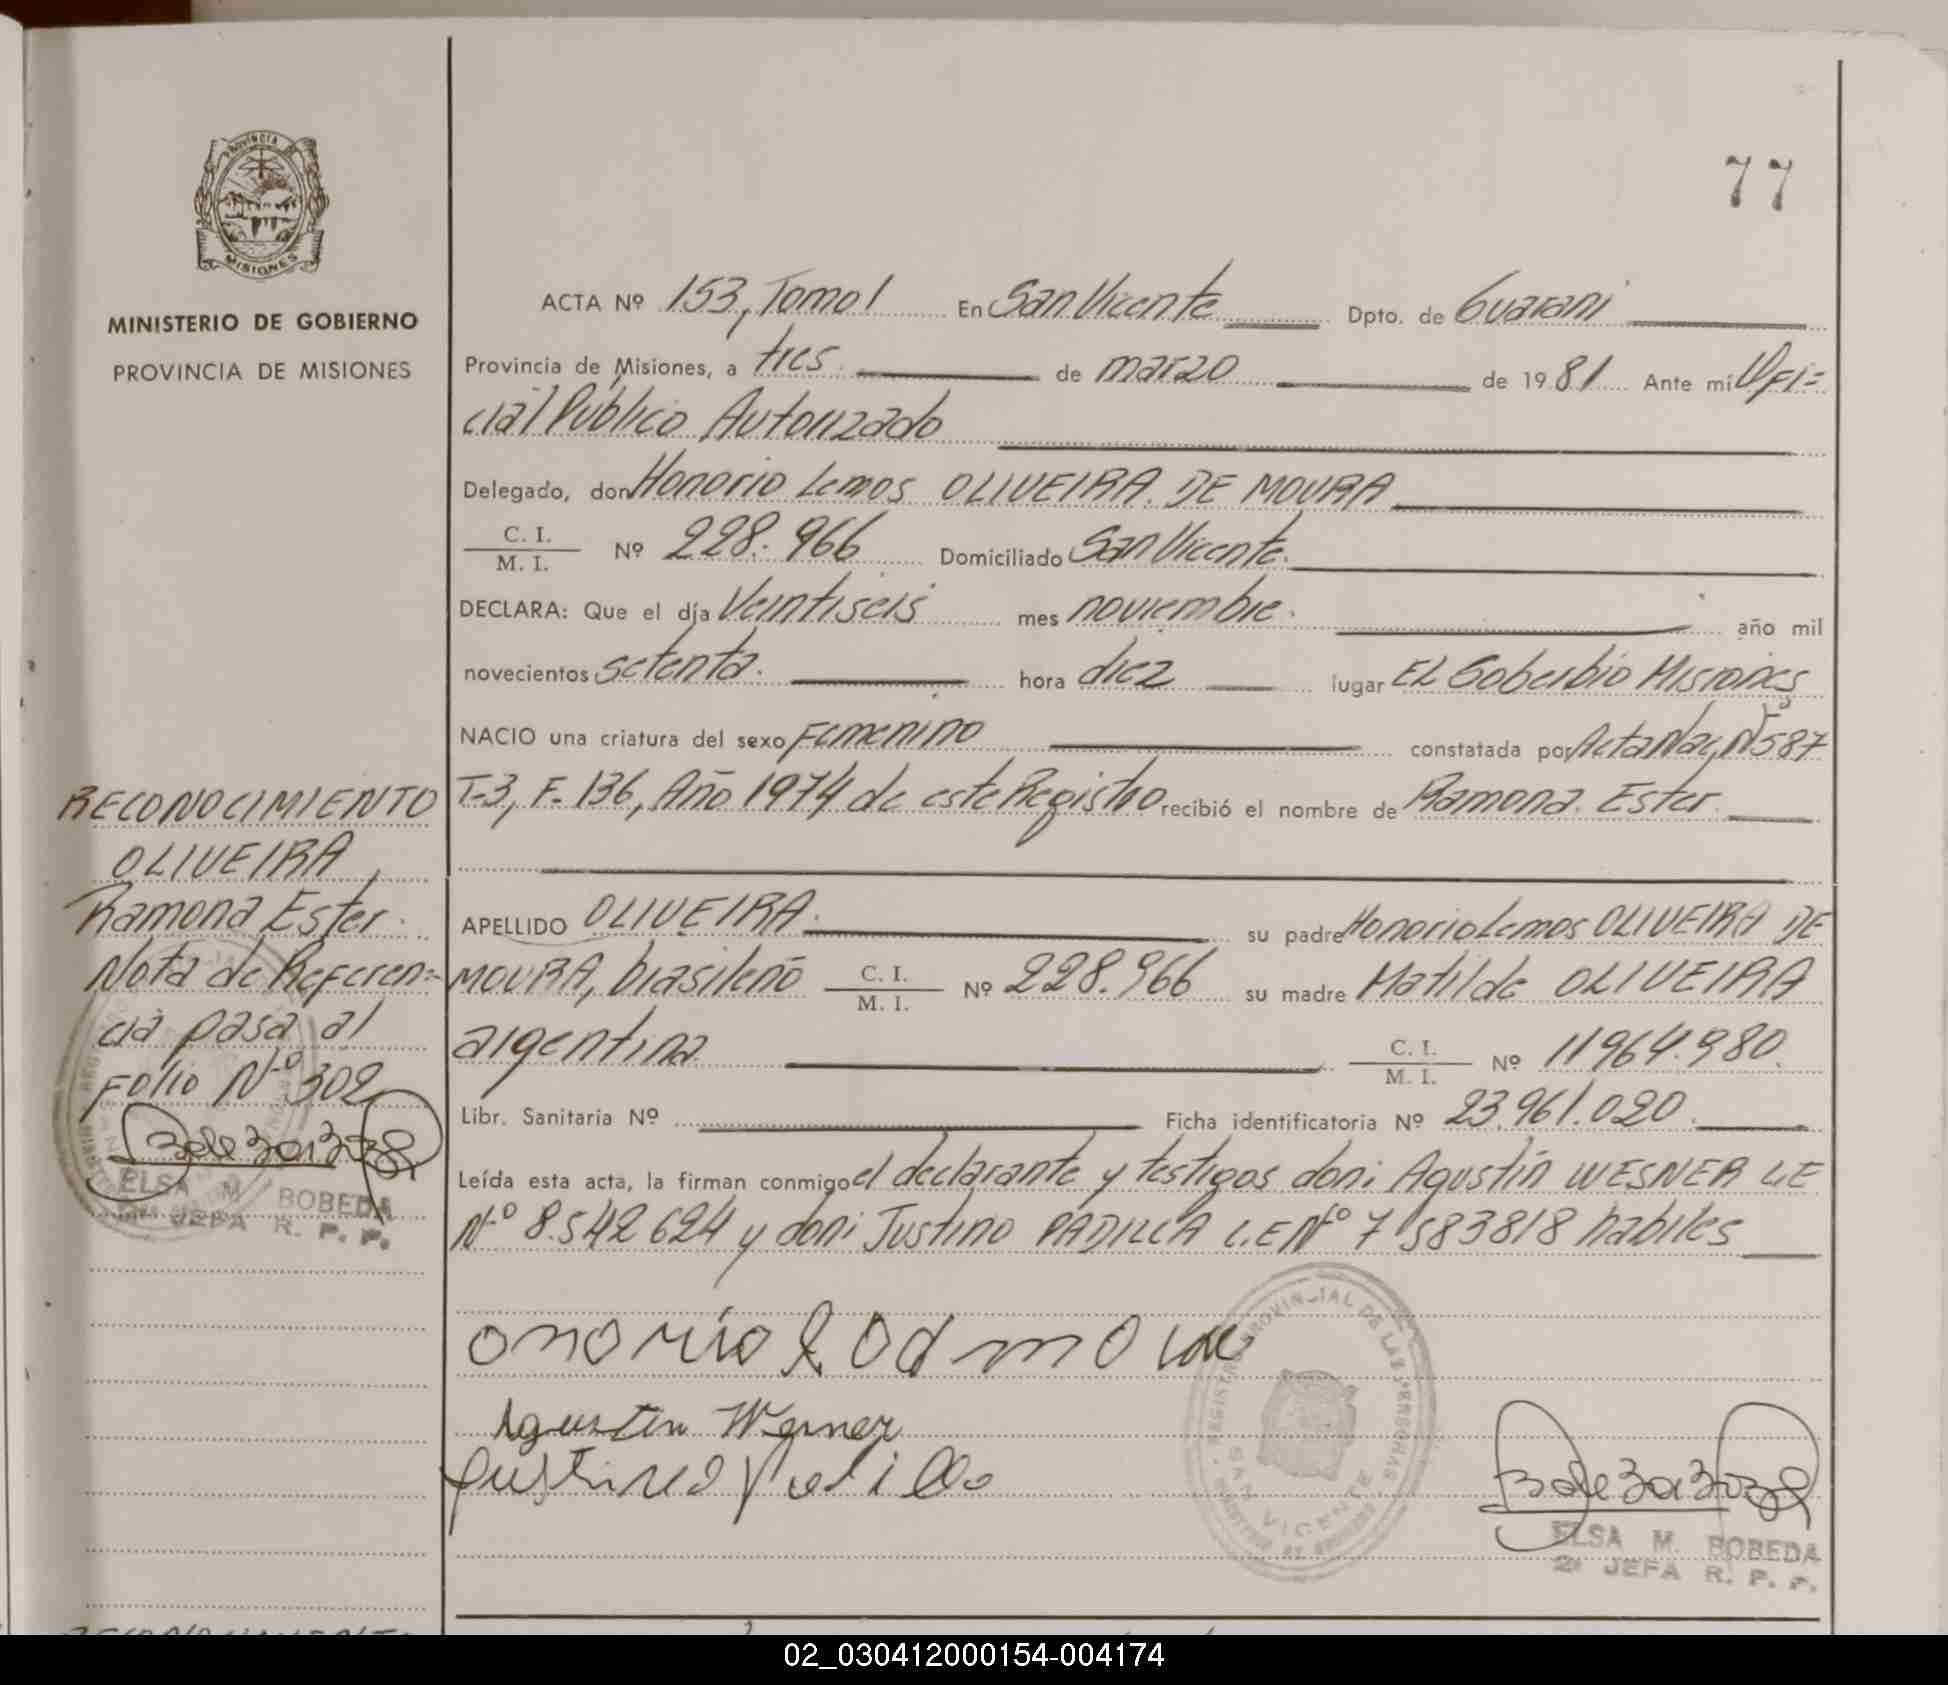 77
PROVINCIA DE
MISIONES
MINISTERIO DE GOBIERNO
PROVINCIA DE MISIONES
ACTA Nº 153, Tomo I En San Vicente Dpto. de Guarani
Provincia de Misiones, a tres de marzo de 1981 Ante mi Ofi=
cial Público Autorizado
Delegado, don Honorio Lemos OLIVEIRA DE MOURA
C. I. / M. I. Nº 228.966 Domiciliado San Vicente.
DECLARA: Que el día Veintiseis mes noviembre. año mil
novecientos setenta. hora diez lugar EL Soberbio Misiones
NACIO una criatura del sexo Femenino constatada por Acta Nac, Nº 587
T-3, F- 136, Año 1974 de este Registro recibió el nombre de Ramona Ester
APELLIDO OLIVEIRA. su padre Honorio Lemos OLIVEIRA DE
MOURA, brasileño C. I. / M. I. Nº 228.966 su madre Matilde OLIVEIRA
argentina C. I. / M. I. Nº 11964.980.
Libr. Sanitaria Nº Ficha identificatoria Nº 23.961.020.
Leída esta acta, la firman conmigo el declarante y testigos don: Agustín WESNER LE
Nº 8.542624 y don: Justino PADILLA L.E Nº 7583818 habiles
RECONOCIMIENTO
OLIVEIRA
Ramona Ester.
Nota de Referen=
cia pasa al
Folio Nº 302
ELSA M BOBEDA
2ª JEFA R. P. P.
onorio L O d moura
Agustin Wesner
Justino Padilla
REGISTRO PROVINCIAL DE LAS PERSONAS
SAN VICENTE
ELSA M. BOBEDA
2ª JEFA R. P. P.
02_030412000154-004174